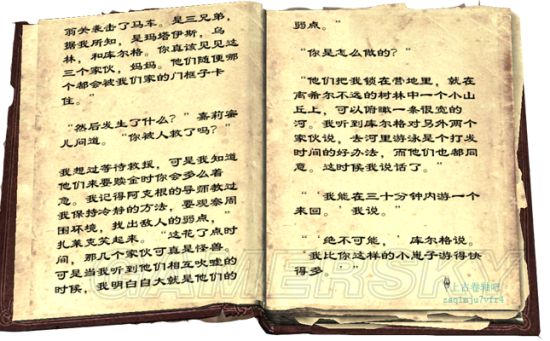 翁关袭击了马车。是三兄弟，
据我所知，是玛塔伊斯，乌
林，和库尔格。你真该见见这
三个家伙，妈妈。他们随便哪
个都会被我们家的门框子卡
住。”
“然后发生了什么？”嘉莉蜜
儿问道。“你被人救了吗？”
我想过等待救援，可是我知道
他们来要赎金时你会多么着
急。我记得阿克根的导师教过
我保持冷静的方法，要观察周
围环境，找出敌人的弱点，”
扎莱克笑起来。“这花了点时
间，那几个家伙可真是怪兽。
可是当我听到他们相互吹嘘的
时候，我明白自大就是他们的
弱点。”
“你是怎么做的？”
“他们把我锁在营地里，就在
离希尔不远的树林中一个小山
丘上，可以俯瞰一条很宽的
河。我听到库尔格对另外两个
家伙说，去河里游泳是个打发
时间的好办法，而他们也都同
意。这时候我说话了。”
“‘我能在三十分钟内游一个
来回。’我说。”
“‘绝不可能，’库尔格说。
‘我比你这样的小崽子游得快
得多。’”
GAMERSKY
上古卷轴吧
zaq1mju7vfr4